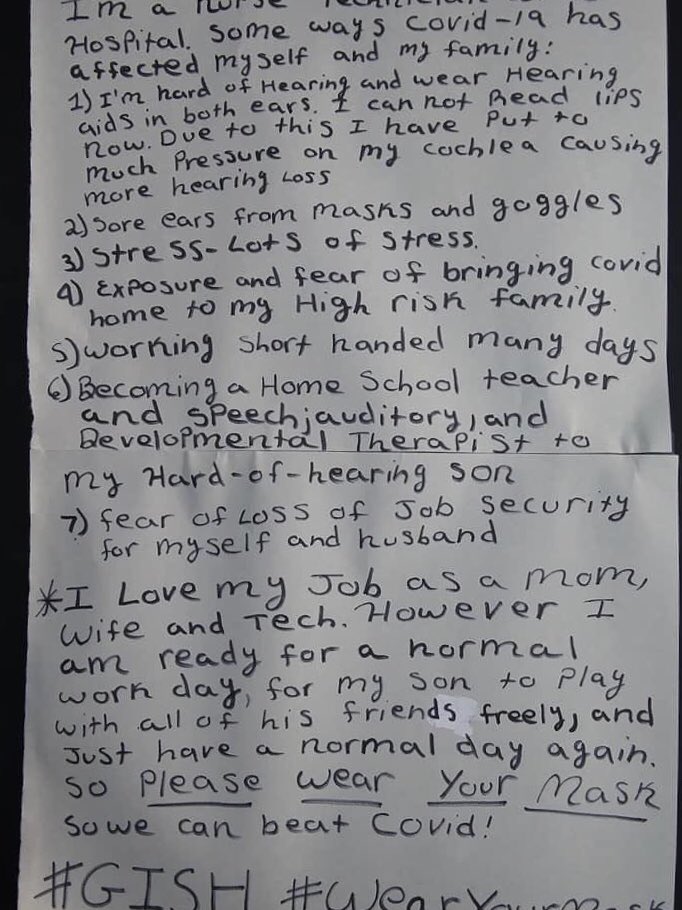 I'm a nurse Technician
Hospital. Some ways Covid-19 has
affected myself and my family:
1) I'm hard of Hearing and wear Hearing
aids in both ears. I can not Read lips
now. Due to this I have Put to
much Pressure on my cochlea causing
more hearing Loss
2) Sore ears from masks and goggles
3) Stress-Lots of Stress.
4) Exposure and fear of bringing covid
home to my High risk family.
5) Working Short handed many days
6) Becoming a Home School teacher
and Speech, auditory, and
Developmental Therapist to
my Hard-of-hearing son
7) fear of Loss of Job Security
for myself and husband
*I Love my Job as a mom,
wife and Tech. However I
am ready for a normal
work day, for my son to Play
with all of his friends freely, and
Just have a normal day again.
So Please wear Your Mask
So we can beat Covid!
#GISH #WearYourMask